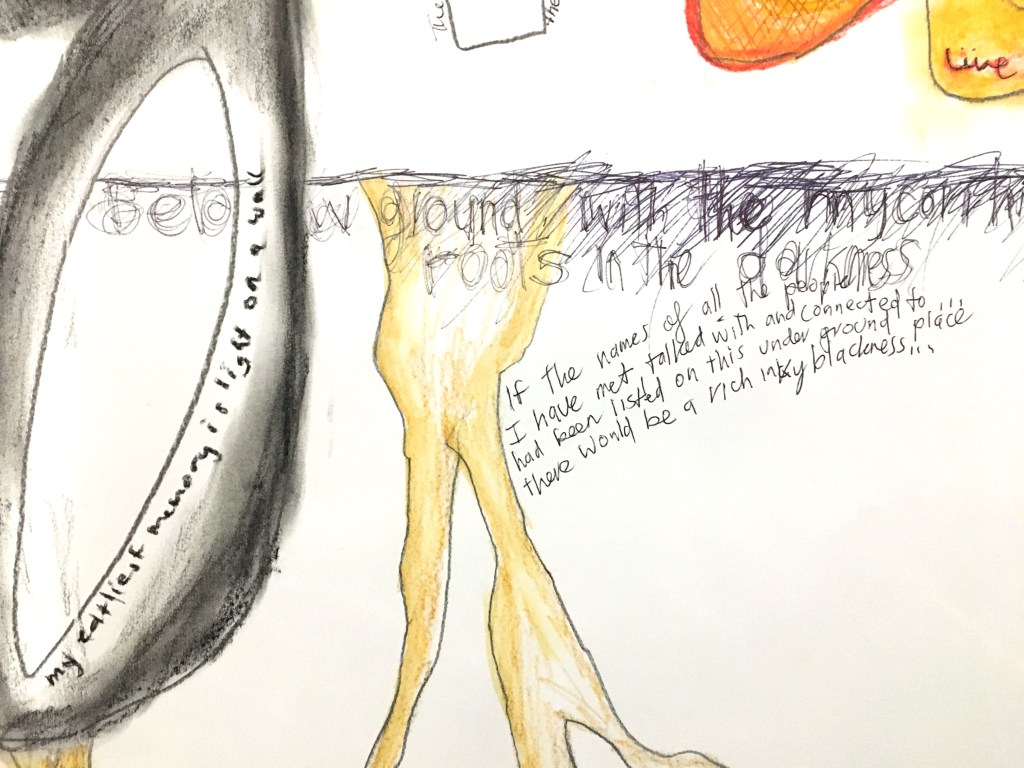 The
the
Live
Below ground, with the mycorrhi
roots in the darkness
If the names of all the people
I have met talked with and connected to ...
had been listed on this under ground place
there would be a rich inky blackness...
my earliest memory is light on a wall